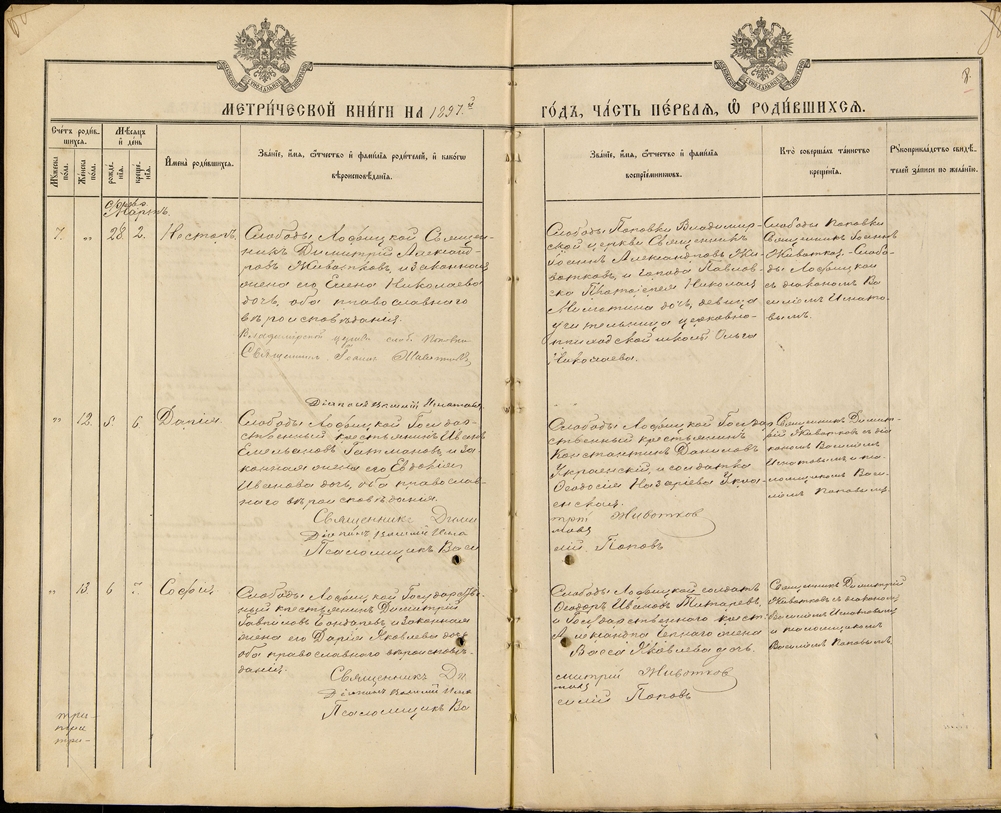 МЕТРИ́ЧЕСКОЙ КНИ́ГИ НА 1897.й
ГО́ДЪ, ЧА́СТЬ ПЕ́РВАЯ, Ѡ РОДИ́ВШИХСЯ.
8.
Сче́тъ роди́в-
шихся.
Мѣ́сяцъ
и҆ де́нь
Му́жеска по́ла.
Же́нска по́ла.
рожде́нїя.
креще́нїя.
И҆мена̀ роди́вшихся.
Зва́нїе, и҆́мя, ѻ҆́тчество и҆ фами́лїя роди́телей, и҆ како́гѡ
вѣроисповѣ́данїя.
Зва́нїе, и҆́мя, ѻ҆́тчество и҆ фами́лїя
воспрїе́мникѡвъ.
Кто̀ соверша́лъ та́инство
креще́нїя.
Рꙋкоприкла́дство свидѣ́-
телей за́писи по жела́нїю.
Мартъ.
7. „ 28. 2. Несторъ.
Слободы Лофицкой Священ-
никъ Димитрій Алексан-
дровъ Животковъ, и законная
жена его Елена Николаева
дочь, оба православнаго
вѣроисповѣданія.
Владимірской церкви слоб. Поповки
Священникъ Іоаннъ Животковъ
Діаконъ Василій Игнатовъ
Слободы Поповки Владимір-
ской церкви Священникъ
Іоаннъ Александровъ Жи-
вотковъ, и города Павлов-
ска Протоіерея Николая
дочь, девица
учительница церковно-
приходской школы Ольга
Николаева.
Слободы Поповки
Священникъ Іоаннъ
Животковъ, Слобо-
ды Лофицкой
съ діакономъ Ва
силіемъ Игнато-
вымъ.
„ 12. 5. 6. Дарія.
Слободы Лофицкой Государ-
ственный крестьянинъ Иванъ
Емельяновъ и за-
конная жена его Евдокія
Иванова дочь, оба православ-
наго вѣроисповѣданія.
Священникъ Дими
Діаконъ Василій Игна
Псаломщикъ Васи
Слободы Лофицкой Государ
ственный крестьянинъ
Константинъ Даниловъ
Украенскій, и солдатка
Ѳеодосія Назарьева Укра-
енская.
трій Животковъ
товъ
лій Поповъ
Священникъ Димит-
рій Животковъ съ діа
кономъ Василіемъ
Игнатовымъ и пса-
ломщикомъ Васи-
ліемъ Поповымъ.
„ 13. 6 7. Софія
Слободы Лофицкой Государствен-
ный крестьянинъ Димитрій
Гавриловъ и законная
жена его Дарія Яковлева дочь
оба православнаго вѣроисповѣ-
данія.
Священникъ Ди
Діаконъ Василій Игна
Псаломщикъ Ва
Слободы Лофицкой солдатъ
Ѳеодоръ Ивановъ Титаревъ
и Государственнаго крест.
Александра жена
Васса Яковлева дочь.
митрій Животковъ
товъ
силій Поповъ
Священникъ Димитрій
Животковъ съ діакономъ
Василіемъ Игнатовымъ
и псаломщикомъ
Василіемъ Поповымъ.